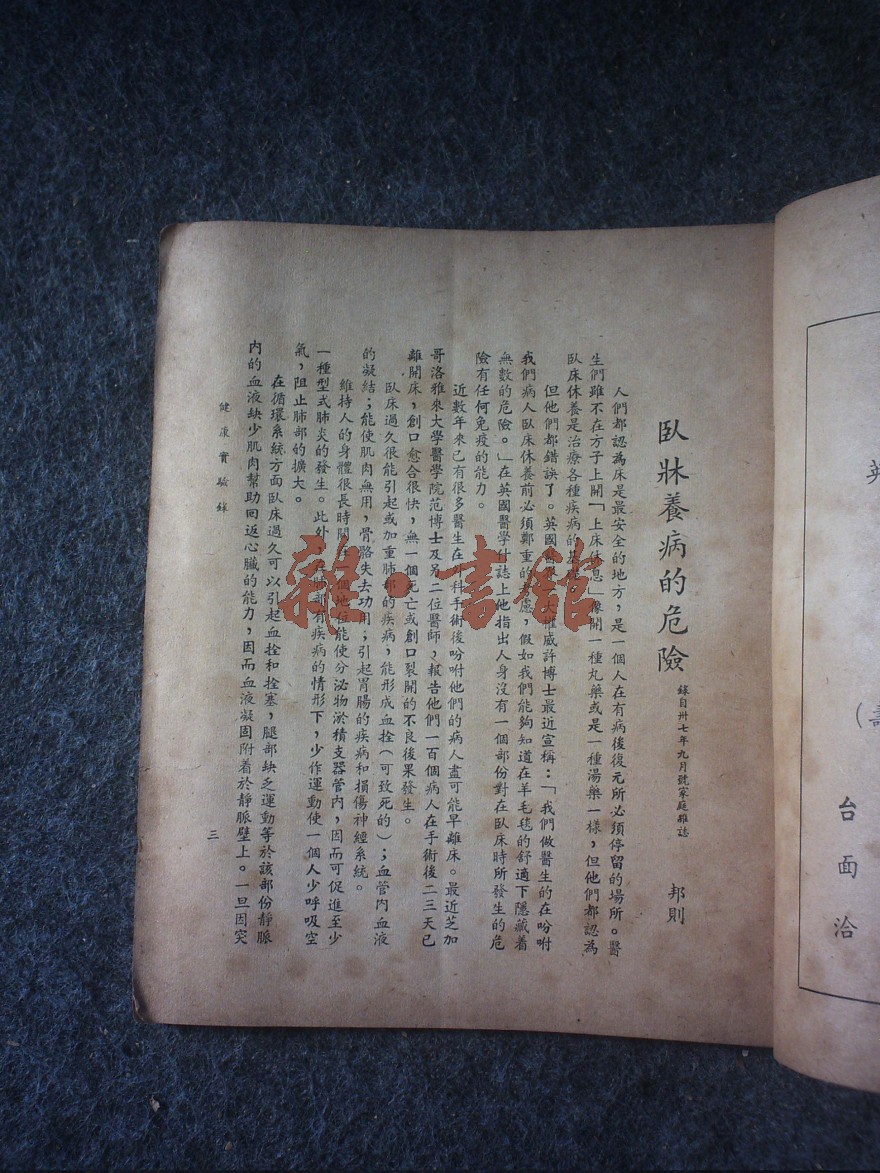 臥牀養病的危險
錄自卅七年九月號家庭雜誌
邦則
人們都認為床是最安全的地方，是一個人在有病後復元所必須停留的場所。醫
生們雖不在方子上開「上床休息」像開一種丸藥或是一種湯藥一樣，但他們都認為
臥床休養是治療各種疾病的基
但他們都錯誤了。英國醫 大權威許博士最近宣稱：「我們做醫生的在吩咐
我們病人臥床休養前必須鄭重的考慮，假如我們能夠知道在羊毛毯的舒適下隱藏着
無數的危險。」在英國醫學什誌上他指出人身沒有一個部份對在臥床時所發生的危
險有任何免疫的能力。
近數年來已有很多醫生在 科手術後吩咐他們的病人盡可能早離床。最近芝加
哥洛雅來大學醫學院范博士及另二位醫師，報告他們一百個病人在手術後二三天已
離開床，創口愈合很快，無一個死亡或創口裂開的不良後果發生。
臥床過久很能引起或加重肺部的疾病，能形成血栓（可致死的）；血管內血液
的凝結；能使肌肉無用，骨骼失去功用；引起胃腸的疾病和損傷神經系統。
維持人的身體很長時間在一個地位能使分泌物淤積支器管內，因而可促進至少
一種型式肺炎的發生。此外 肺部有疾病的情形下，少作運動使一個人少呼吸空
氣，阻止肺部的擴大。
在循環系統方面臥床過久可以引起血拴和拴塞，腿部缺乏運動等於該部份靜脈
內的血液缺少肌肉幫助回返心臟的能力，因而血液凝固附着於靜脈壁上。一旦因突
健康實驗錄
三
雜·書館
台面洽